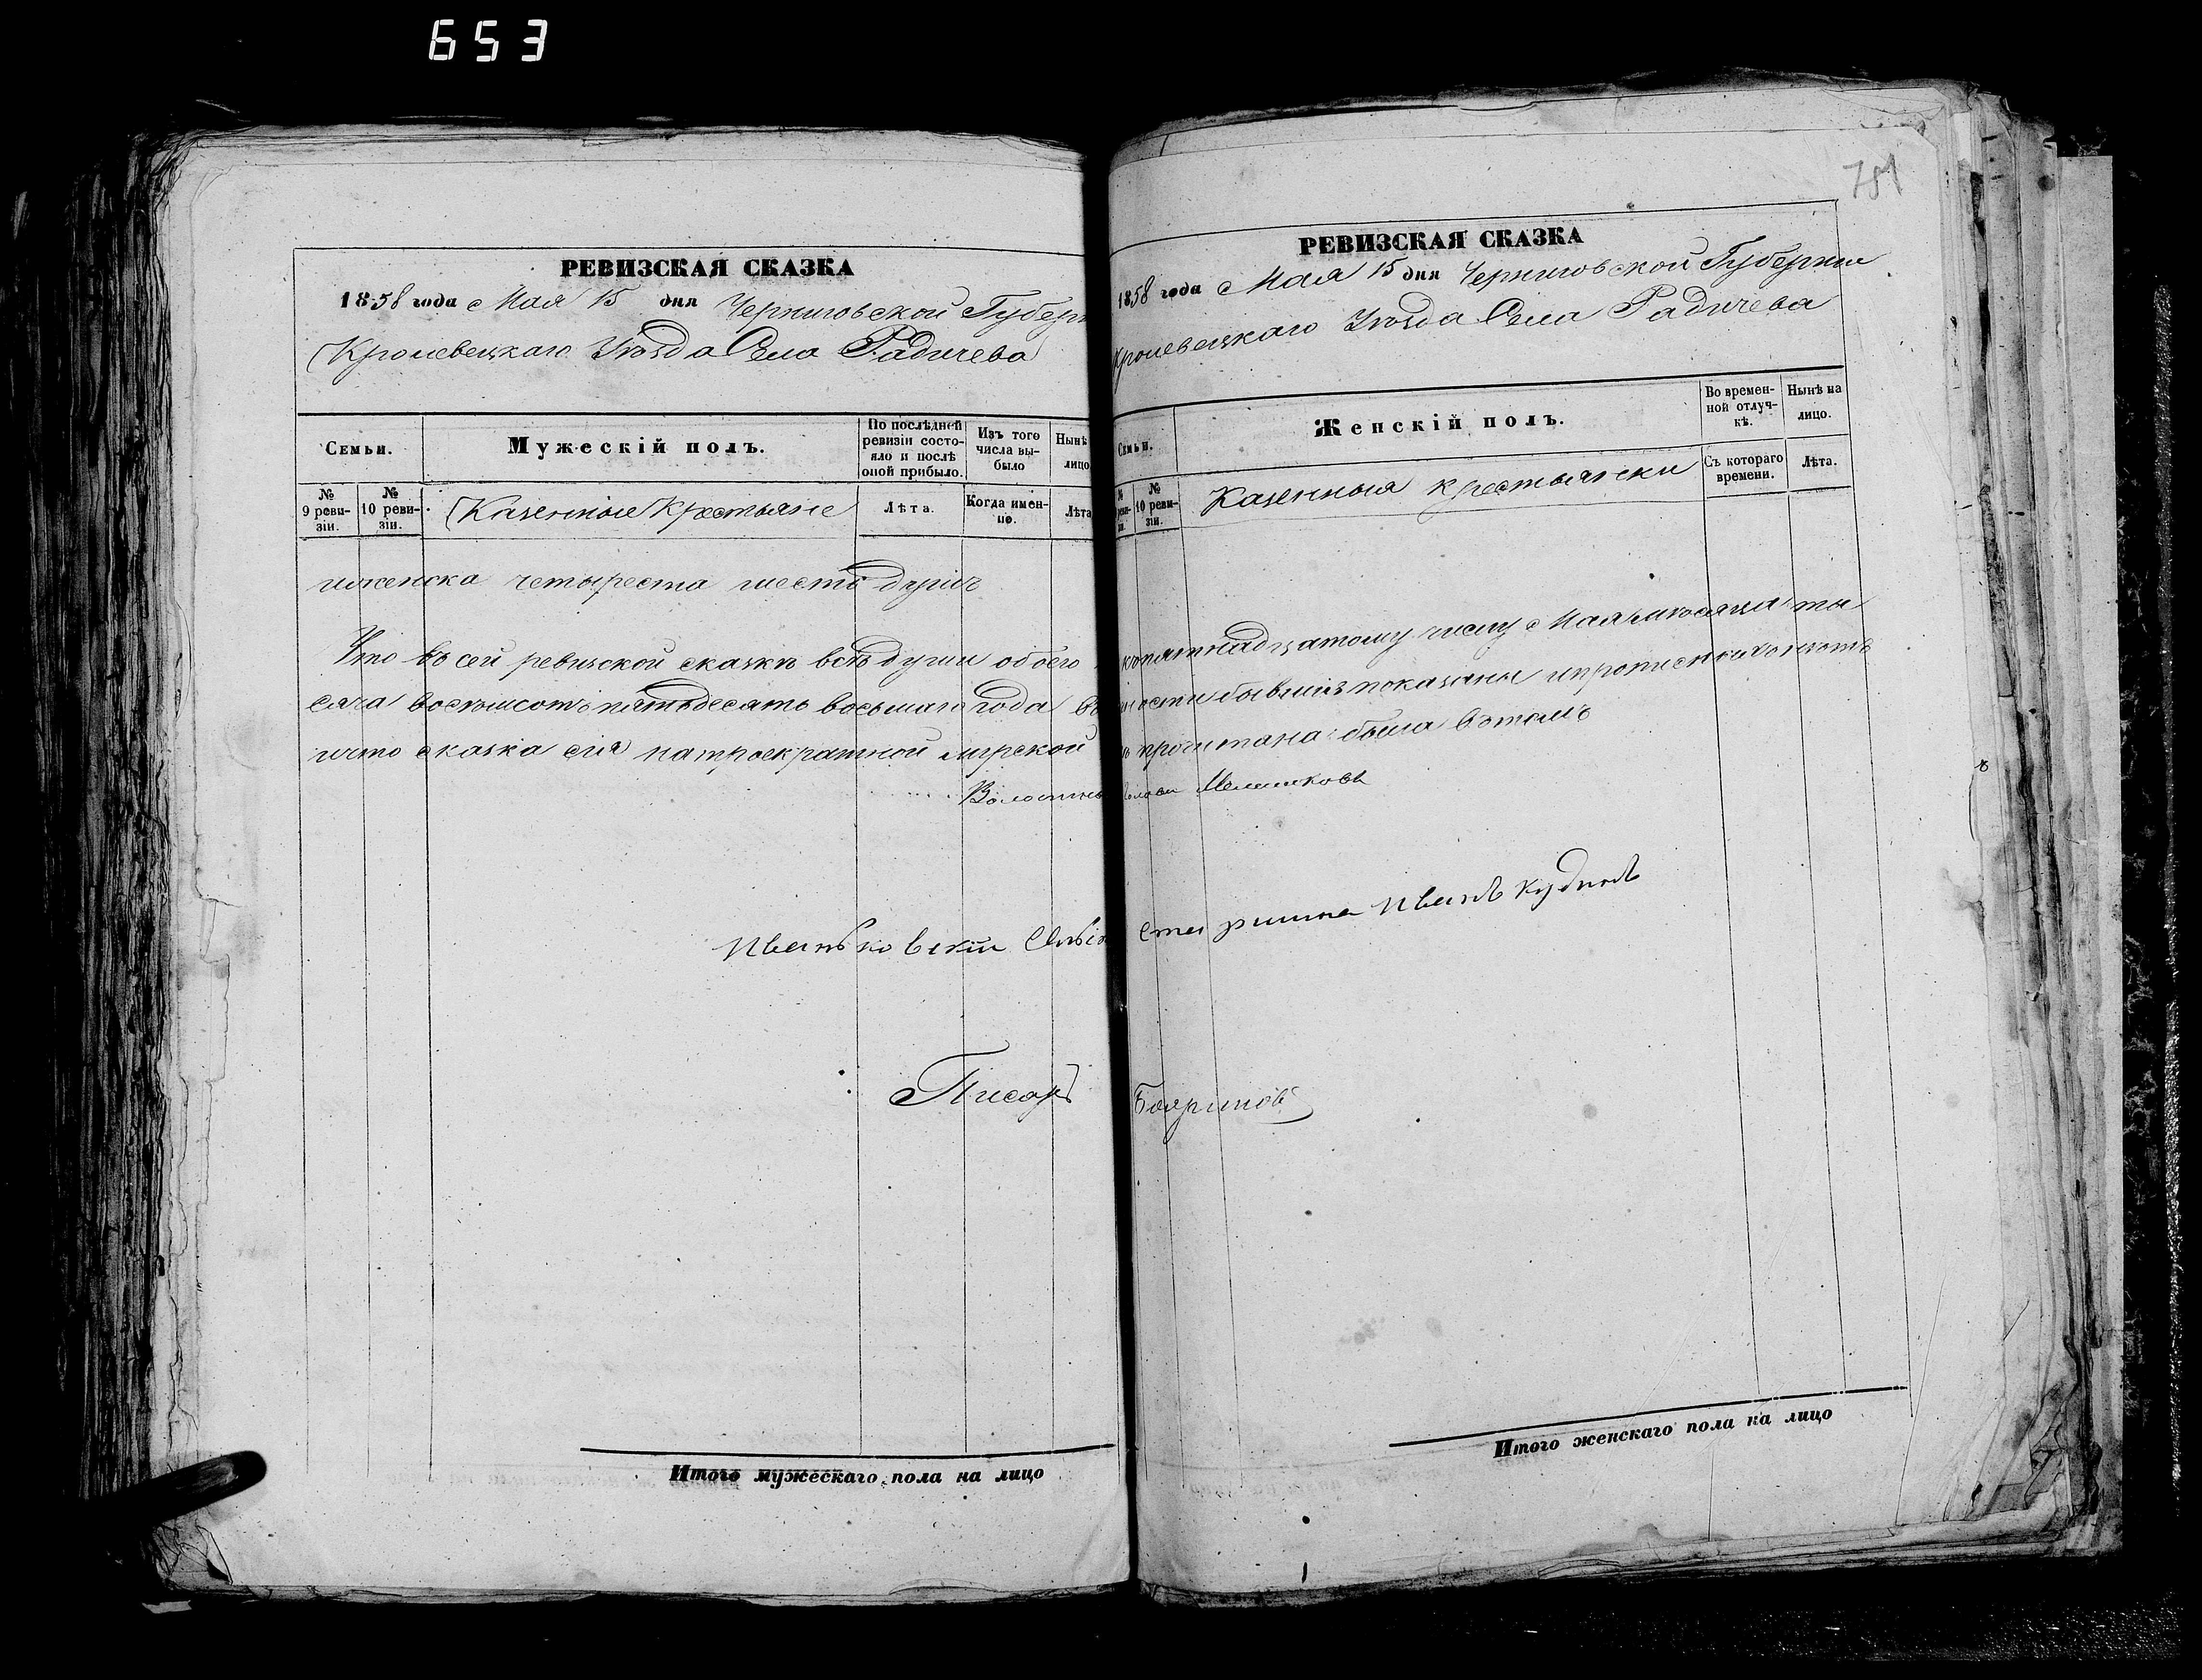 653
751
РЕВИЗСКАЯ СКАЗКА
1858 года Мая 15 дня Черниговской Губерн
Кролевецкаго Уѣзда Села Радичева
Семьи.
Мужескій полъ.
По послѣдней ревизіи состояло и послѣ оной прибыло.
Изъ того числа выбыло
Нынѣ лицо
№ 9 ревизіи.
№ 10 ревизіи.
Казенные Крестьяне
Лѣта.
Когда именно.
Лѣта
иженска четыреста шесть душъ
Что въ сей ревизской сказкѣ всѣ души обоего
сяча восемьсотъ пятьдесятъ восьмаго года
ичто сказка сія натроекратной мирской
Волостны
Иваньковскій
Писарь
Итого мужескаго пола на лицо
РЕВИЗСКАЯ СКАЗКА
1858 года Мая 15 дня Черниговской Губернии
Кролевецкаго Уѣзда Села Радичева
Семьи.
Женскій полъ.
Во временной отлучкѣ.
Нынѣ на лицо.
№ 10 ревизіи.
Казенныя крестьянки
Съ котораго времени.
Лѣта.
кпятнадцатому числу Мая мѣсяца ты
ности бывшіе показаны
прочитана была вътомъ
Голова
старшина Иванъ Кудинъ
Бояриновъ
Итого женскаго пола на лицо